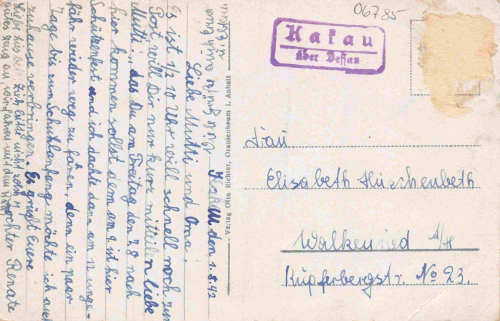 06785
Kakau
über Dessau
Frau
Elisabeth Hirschenbeth
Walkenried a/H
Kupferbergstr. No 23.
Verlag Otto Richter, Oranienbaum i. Anhalt
Kakau, den 1.8.42
Liebe Mutti und Oma,
Es ist 1/2 10 Uhr will schnell noch zur
Post will Dir nur kurz mitteilen liebe
Mutti, das du am Freitag den 7.8 nach
hier kommen sollst denn am 9. ist hier
Schützenfest und ich dachte dann am 12 unge-
fähr wieder weg zu fahren, denn ein paar
Tage bis zum Schulanfang möchte ich auch
zuhause verbringen. Es grüßt Eure
Tochter Renate